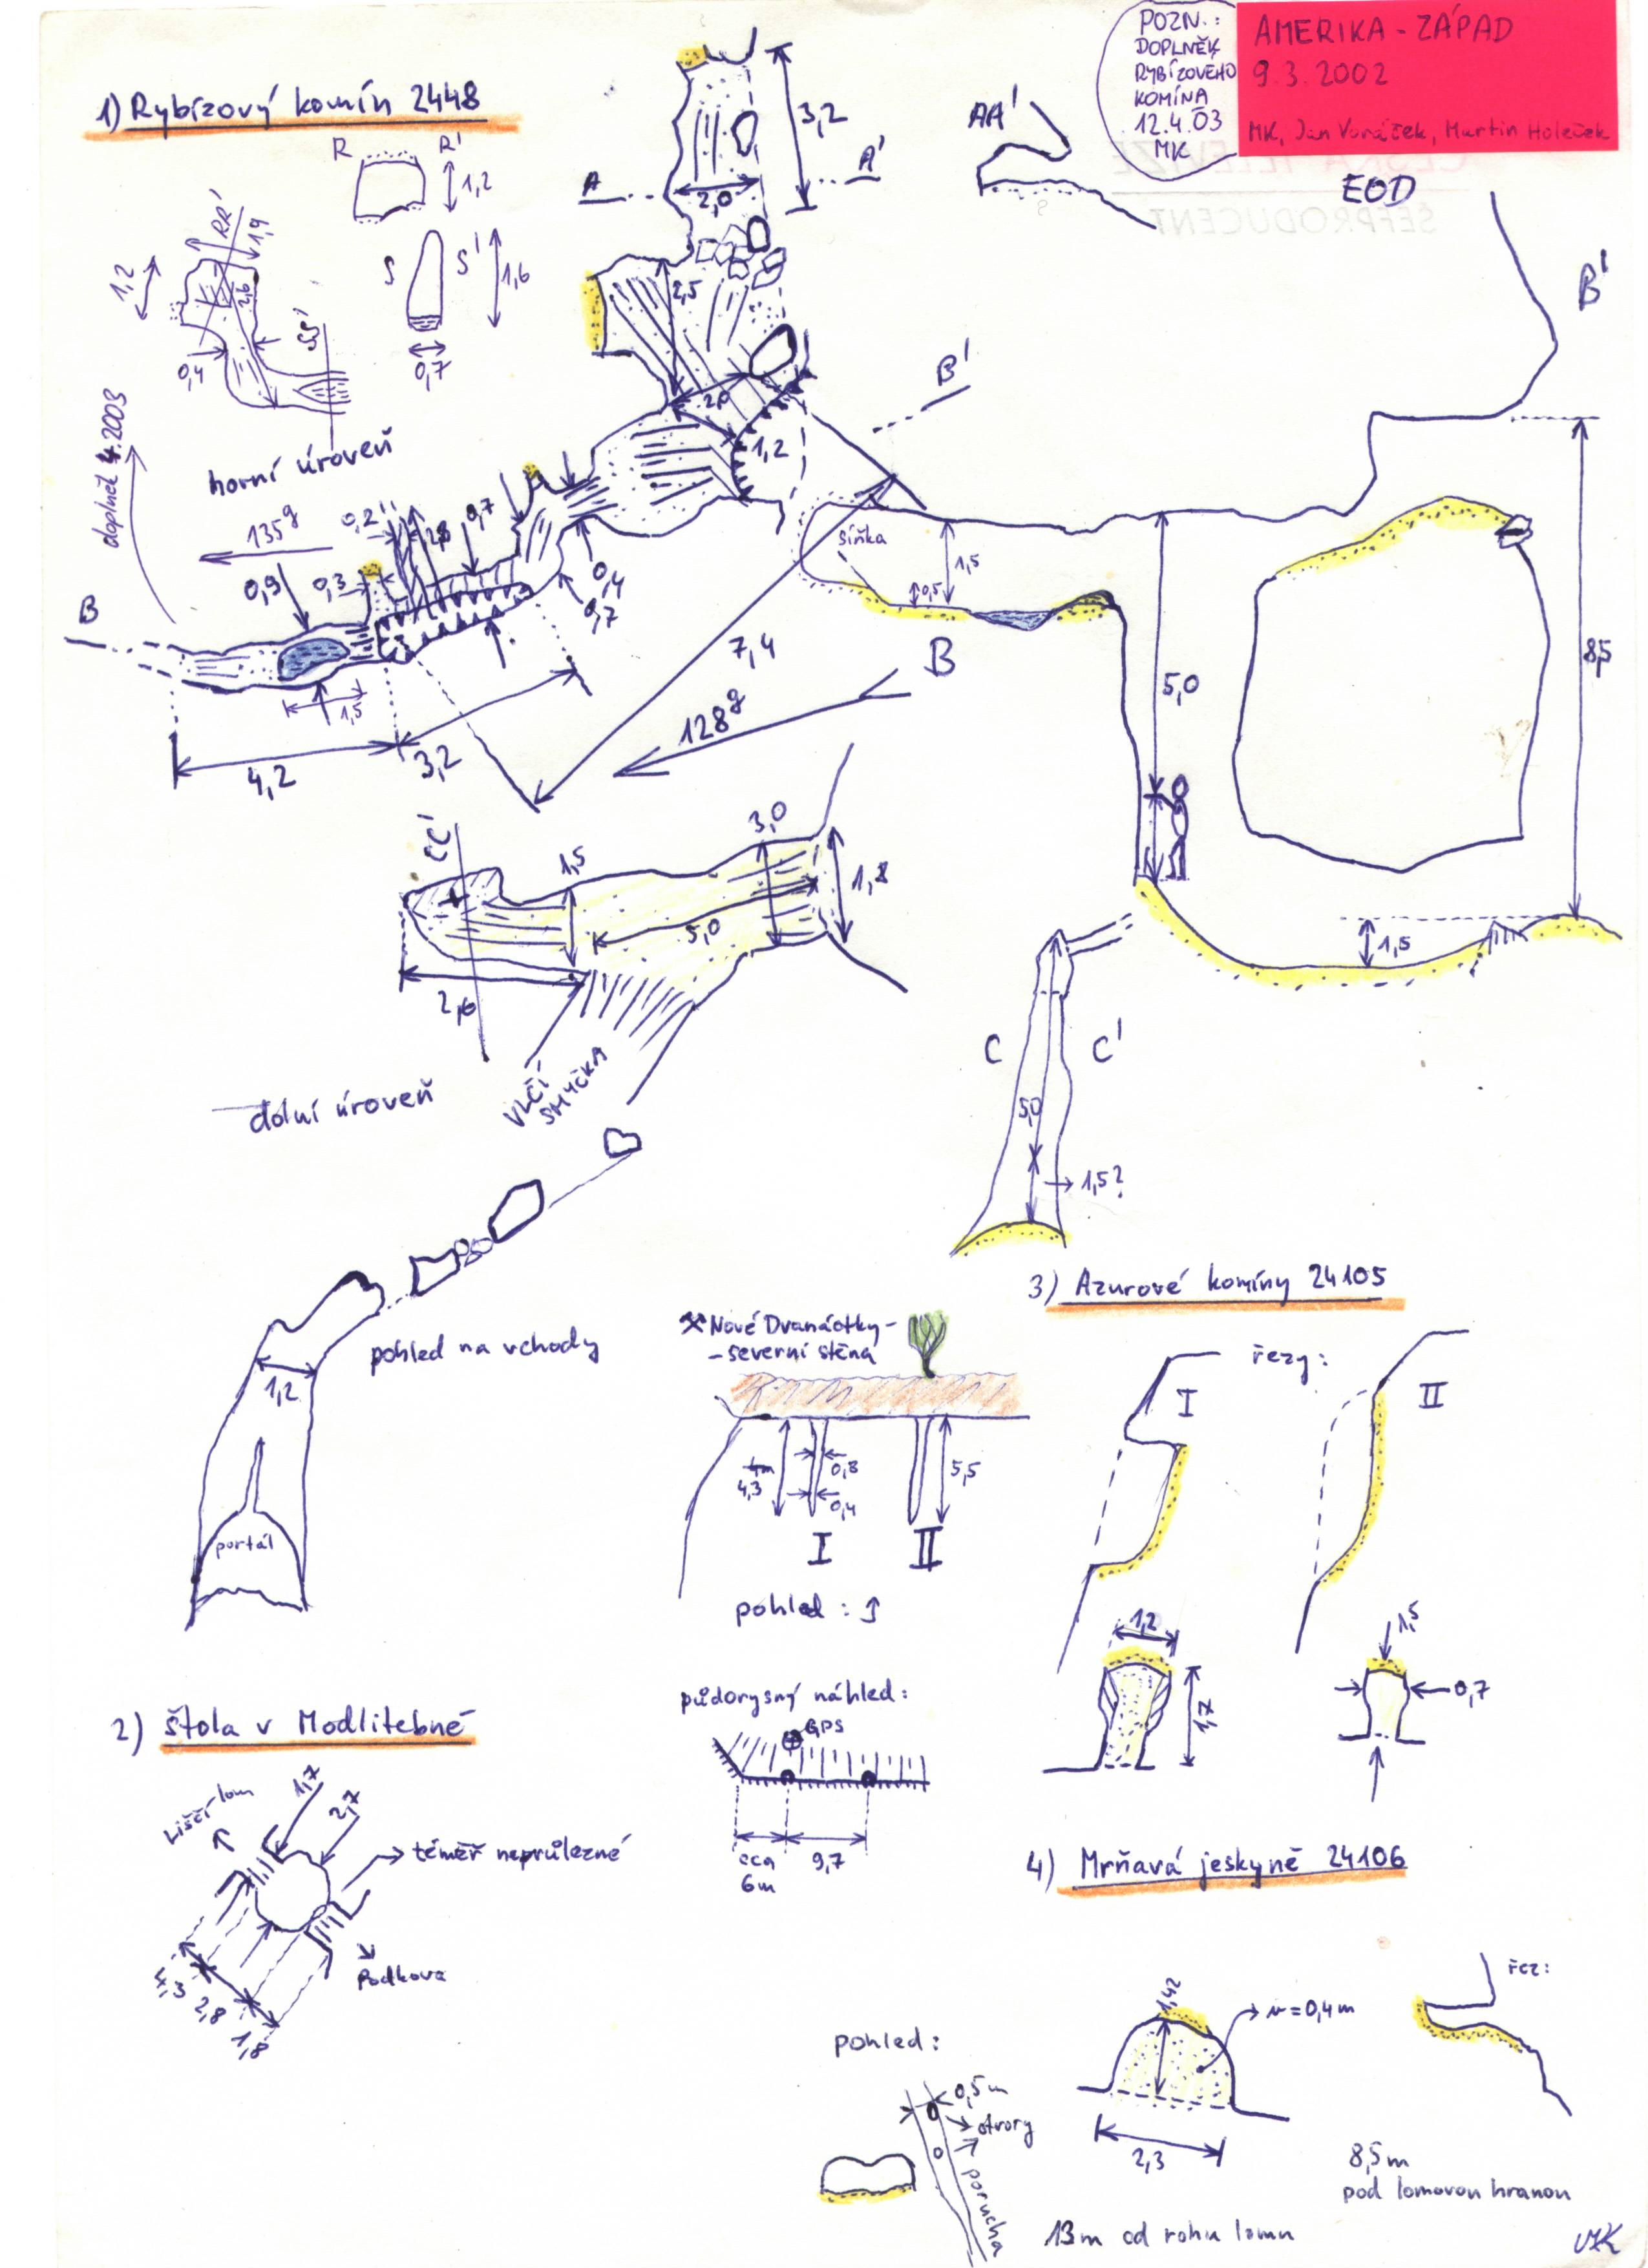 POZN.:
DOPLNĚK
RYBÍZOVÉHO
KOMÍNA
12.4.03
MK
AMERIKA - ZÁPAD
9.3.2002
MK, Jan Voráček, Martin Holeček
ČESKÁ TELEVIZE
ŠÉFPRODUCENT
EOD
1) Rybízový komín 2448
R R'
1,2
S S'
1,6
0,7
RR'
1,9
1,2
2,6
0,4
SS'
A A'
3,2
2,0
AA'
2,5
2,0
1,2
B'
B'
doplněk 4.2003
horní úroveň
135g
0,2
2,8
0,7
0,9
0,3
0,4
0,7
B
1,5
4,2
3,2
7,4
128g
síňka
1,5
0,5
B
5,0
8,5
1,5
CC'
1,5
3,0
1,8
5,0
2,6
VLČÍ
SMYČKA
dolní úroveň
C C'
5,0
1,5?
pohled na vchody
1,2
portál
Nové Dvanáctky -
- severní stěna
4m
4,3
0,8
0,4
5,5
I II
pohled :
půdorysný náhled:
GPS
cca
6m
9,7
3) Azurové komíny 24105
řezy:
I II
1,2
1,7
1,5
0,7
2) Štola v Modlitebně
Liščí lom
1,7
2,7
téměř neprůlezné
Podkova
4,3
2,8
1,8
4) Mrňavá jeskyně 24106
řez:
1,42
v=0,4m
2,3
pohled:
0,5m
otvory
porucha
8,5m
pod lomovou hranou
13m od rohu lomu
MK